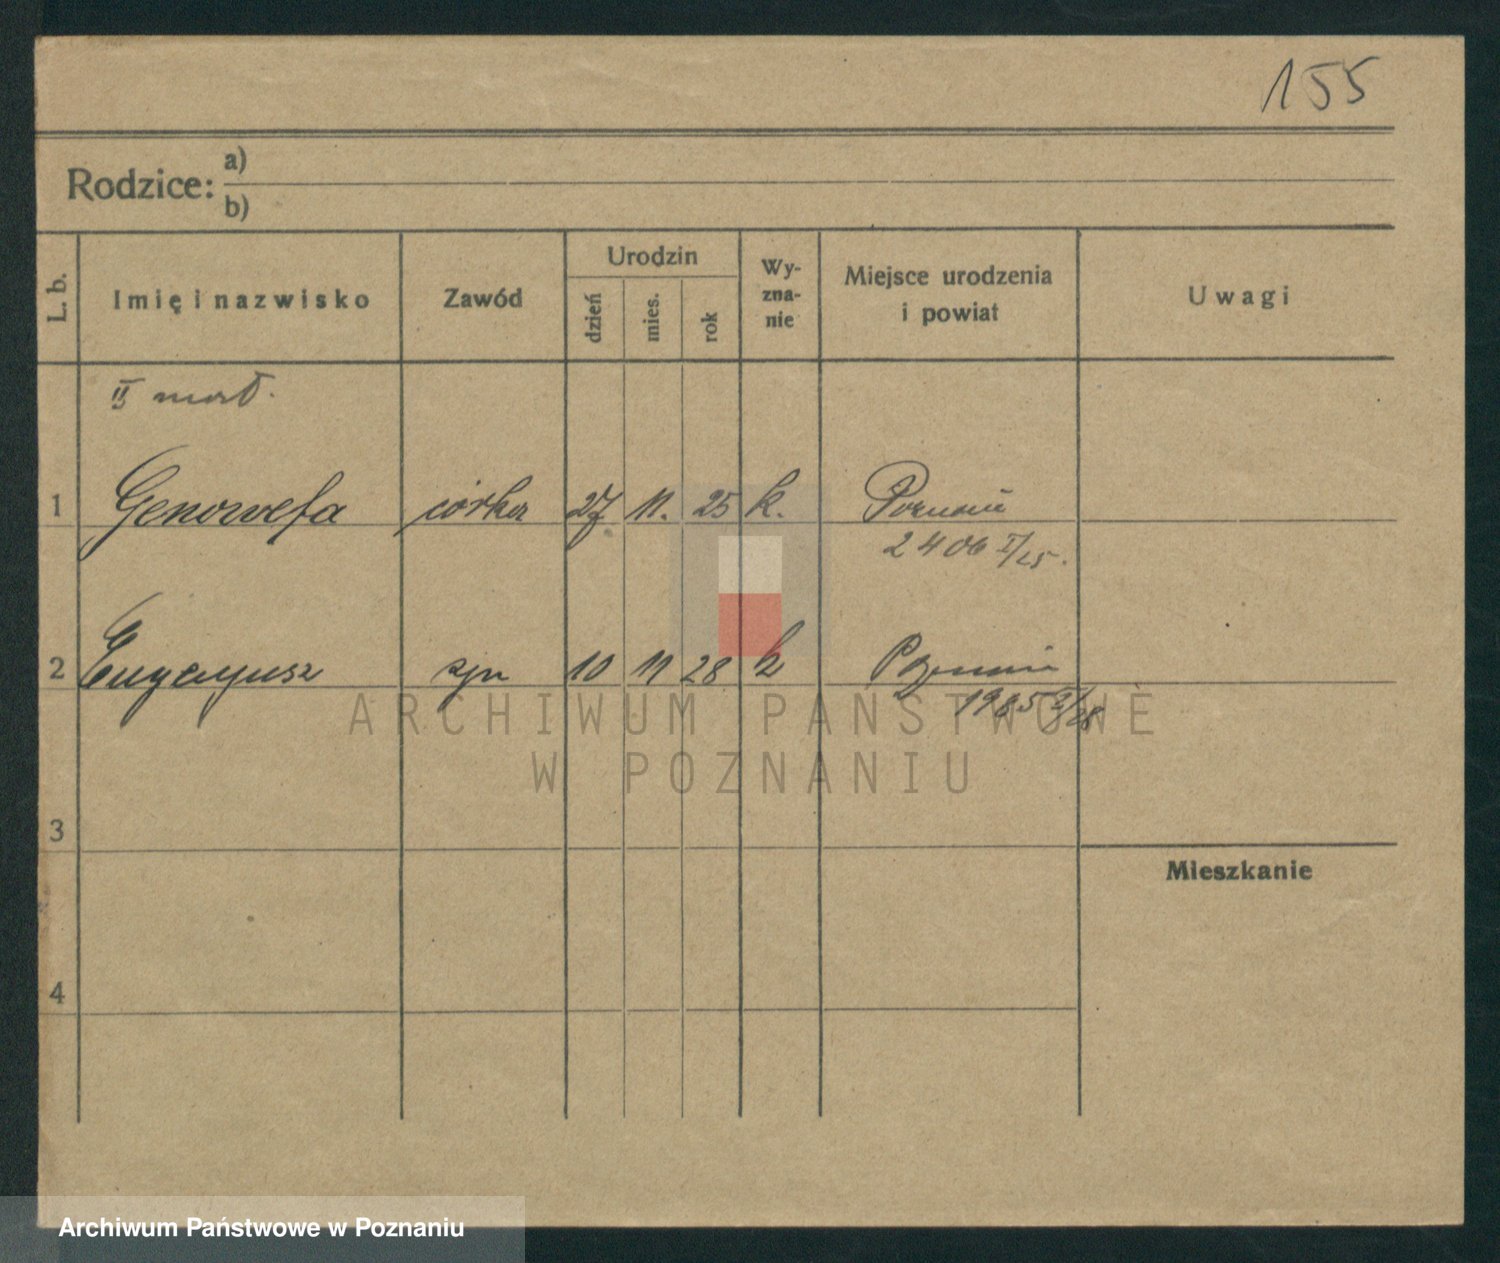 155
Rodzice: a)
b)
L. b. Imię i nazwisko Zawód Urodzin dzień mies. rok Wyzna-nie Miejsce urodzenia i powiat Uwagi
II
1 Genowefa córka 27 11. 25 k. Poznań
2406 I/25.
2 Eugeniusz syn 10 11 28 k Poznań
1985
ARCHIWUM PAŃSTWOWE
W POZNANIU
3
Mieszkanie
4
Archiwum Państwowe w Poznaniu